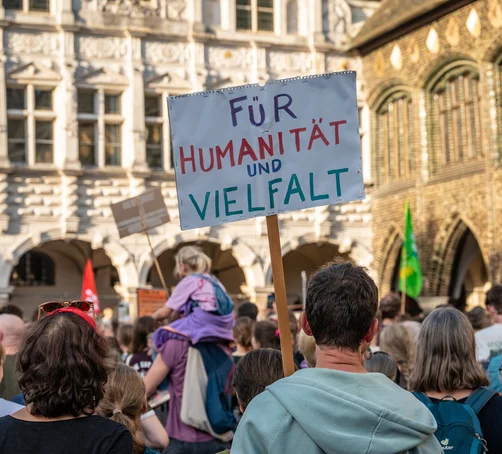 FÜR
HUMANITÄT
UND
VIELFALT
deuter